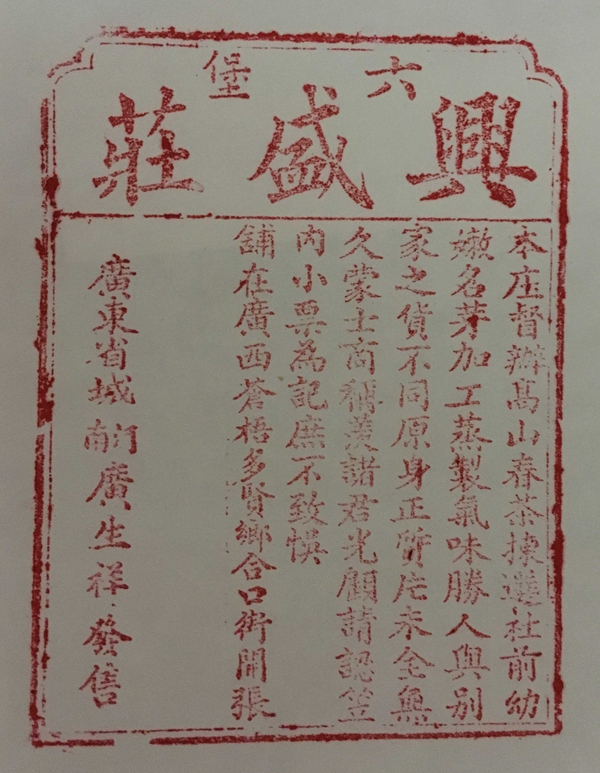 六堡
興盛莊
本庄督辦髙山春茶揀選社前幼
嫩名芽加工蒸製氣味勝人與别
家之貨不同原身正質片末全無
久蒙士商稱羡諸君光顧請認笠
内小票為記庶不致悞
舖在廣西蒼梧多賢鄉合口街開張
廣東省城河南廣生祥發售